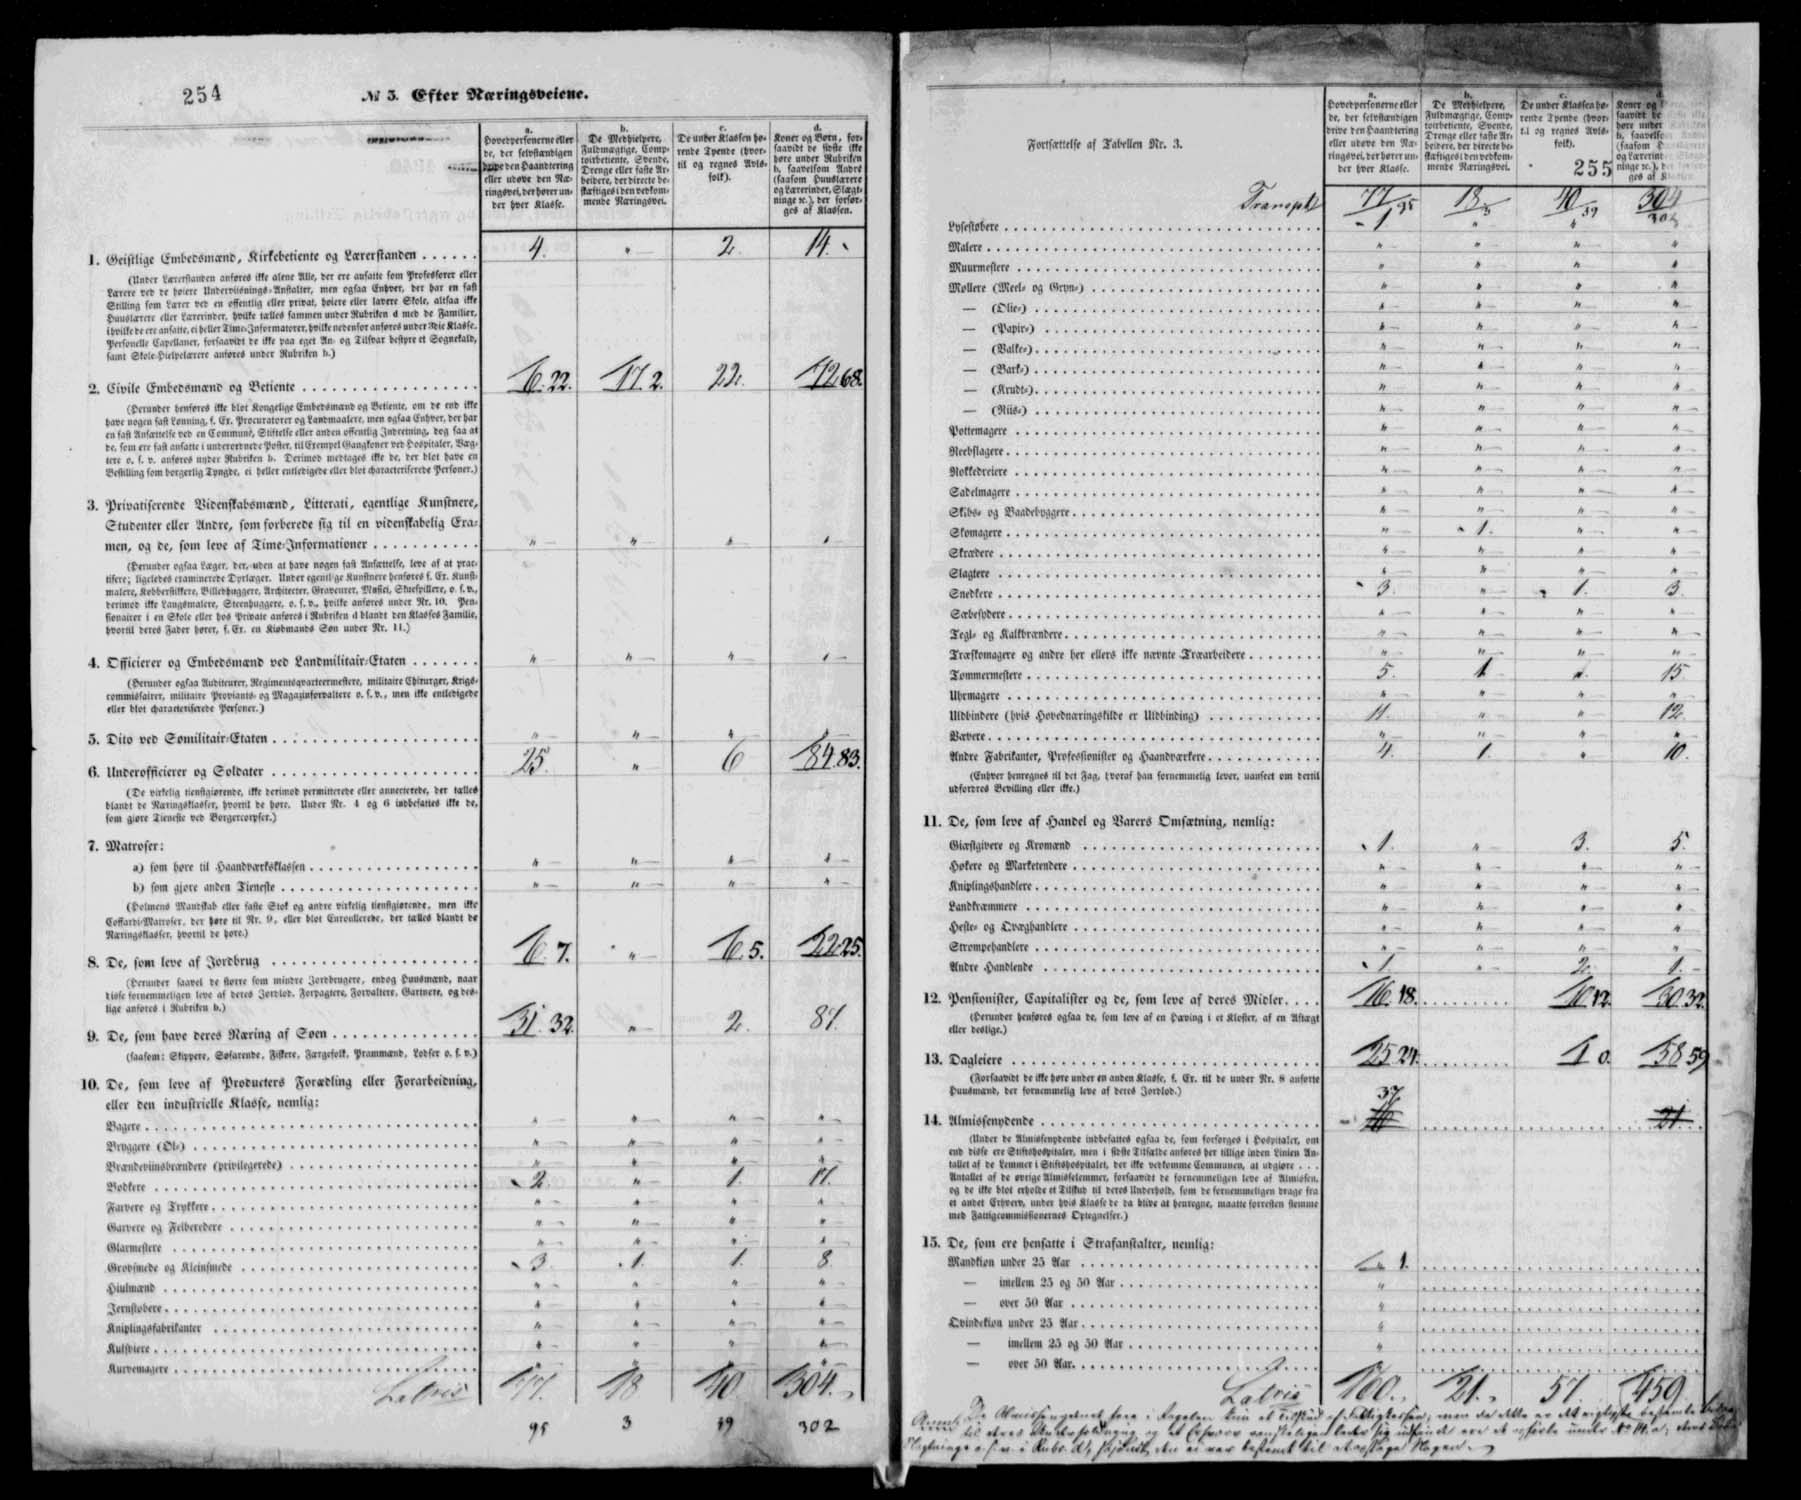 254
№ 3. Efter Næringsveiene.
a.
Hovedpersonerne eller
de, der selvstændigen
drive den Haandtering
eller udøve den Næ-
ringsvei, der hører un-
der hver Klasse.
b.
De Medhielpere,
Fuldmægtige, Comp-
toirbetiente, Svende,
Drenge eller faste Ar-
beidere, der directe be-
skæftiges i den vedkom-
mende Næringsvei.
c.
De under Klassen hø-
rende Tyende (hvor-
til og regnes Avls-
folk).
d.
Koner og Børn, for-
saavidt de sidste ikke
høre under Rubriken
b, saavelsom Andre
(saasom Huuslærere
og Lærerinder, Slægt-
ninge ꝛc.), der forsør-
ges af Klassen.
1. Geistlige Embedsmænd, Kirkebetiente og Lærerstanden 4. " 2. 14.
(Under Lærerstanden anføres ikke alene Alle, der ere ansatte som Professorer eller
Lærere ved de høiere Underviisnings-Anstalter, men ogsaa Enhver, der har en fast
Stilling som Lærer ved en offentlig eller privat, høiere eller lavere Skole, altsaa ikke
Huuslærere eller Lærerinder, hvilke tælles sammen under Rubriken d med de Familier,
i hvilke de ere ansatte, ei heller Time-Informatorer, hvilke nedenfor anføres under 3die Klasse.
Personelle Capellaner, forsaavidt de ikke paa eget An- og Tilsvar bestyre et Sognekald,
samt Skole-Hielpelærere anføres under Rubriken b.)
2. Civile Embedsmænd og Betiente 22. 2. 22. 68.
(Herunder henføres ikke blot Kongelige Embedsmænd og Betiente, om de end ikke
have nogen fast Lønning, f. Ex. Procuratorer og Landmaalere, men ogsaa Enhver, der har
en fast Ansættelse ved en Commune, Stiftelse eller anden offentlig Indretning, dog saa at
de, som ere fast ansatte i underordnede Poster, til Exempel Gangkoner ved Hospitaler, Væg-
tere o. s. v. anføres under Rubriken b. Derimod medtages ikke de, der blot have en
Bestilling som borgerlig Tyngde, ei heller entledigede eller blot characteriserede Personer.)
3. Privatiserende Videnskabsmænd, Litterati, egentlige Kunstnere,
Studenter eller Andre, som forberede sig til en videnskabelig Exa-
men, og de, som leve af Time-Informationer " " " "
(Herunder ogsaa Læger, der, uden at have nogen fast Ansættelse, leve af at prac-
tisere; ligeledes examinerede Dyrlæger. Under egentlige Kunstnere henføres f. Ex. Kunst-
malere, Kobberstikkere, Billedhuggere, Architecter, Graveurer, Musici, Skuespillere, o. s. v.,
derimod ikke Langsmalere, Steenhuggere, o. s. v., hvilke anføres under Nr. 10. Pen-
sionairer i en Skole eller hos Private anføres i Rubriken d blandt den Klasses Familie,
hvortil deres Fader hører, f. Ex. en Kiøbmands Søn under Nr. 11.)
4. Officierer og Embedsmænd ved Landmilitair-Etaten " " " "
(Herunder ogsaa Auditeurer, Regimentsqvarteermestere, militaire Chirurger, Krigs-
commissairer, militaire Proviants- og Magazinforvaltere o. s. v., men ikke entledigede
eller blot characteriserede Personer.)
5. Dito ved Sømilitair-Etaten " " " "
6. Underofficierer og Soldater 25. " 6 84 83.
(De virkelig tienstgiørende, ikke derimod permitterede eller annecterede, der tælles
blandt de Næringsklasser, hvortil de høre. Under Nr. 4 og 6 indbefattes ikke de,
som giøre Tieneste ved Borgercorpser.)
7. Matroser:
a) som høre til Haandværksklassen " " " "
b) som gjøre anden Tieneste " " " "
(Holmens Mandskab eller faste Stok og andre virkelig tienstgiørende, men ikke
Coffardi-Matroser, der høre til Nr. 9, eller blot Enroullerede, der tælles blandt de
Næringsklasser, hvortil de høre.)
8. De, som leve af Jordbrug 6. 7. " 6. 5. 22 25.
(Herunder saavel de større som mindre Jordbrugere, endog Huusmænd, naar
disse fornemmeligen leve af deres Jordlod. Forpagtere, Forvaltere, Gartnere, og des-
lige anføres i Rubriken b.)
9. De, som have deres Næring af Søen 31. 32. " 2. 87.
(saasom: Skippere, Søfarende, Fiskere, Færgefolk, Prammænd, Lodser o. s. v.)
10. De, som leve af Producters Forædling eller Forarbeidning,
eller den industrielle Klasse, nemlig:
Bagere " " " "
Bryggere (Øl-) " " " "
Brændeviinsbrændere (privilegerede) " " " "
Bødkere 2 " 1. 11.
Farvere og Trykkere " " " "
Garvere og Feldberedere " " " "
Glarmestere " " " "
Grovsmede og Kleinsmede 3 1. 1. 8
Hiulmænd " " " "
Jernstøbere " " " "
Kniplingsfabrikanter " " " "
Kulsviere " " " "
Kurvemagere " " " "
Latris 77. 18 40 304.
95 3 39 302
Fortsættelse af Tabellen Nr. 3.
a.
Hovedpersonerne eller
de, der selvstændigen
drive den Haandtering
eller udøve den Næ-
ringsvei, der hører un-
der hver Klasse.
b.
De Medhielpere,
Fuldmægtige, Comp-
toirbetiente, Svende,
Drenge eller faste Ar-
beidere, der directe be-
skæftiges i den vedkom-
mende Næringsvei.
c.
De under Klassen hø-
rende Tyende (hvor-
til og regnes Avls-
folk).
255
d.
Koner og
saavidt de
høre under
b, saavelsom
(saasom
og Lærerind
ninge ꝛc.), d
ges af
Transport 77 95 18 3 40 39 304 302
Lysestøbere 1 " " "
Malere " " " "
Muurmestere " " " "
Møllere (Meel- og Gryn-) " " " "
— (Olie-) " " " "
— (Papir-) " " " "
— (Valke-) " " " "
— (Bark-) " " " "
— (Krudt-) " " " "
— (Riis-) " " " "
Pottemagere " " " "
Reebslagere " " " "
Rokkedreiere " " " "
Sadelmagere " " " "
Skibs- og Baadebyggere " " " "
Skomagere " 1. " "
Skrædere " " " "
Slagtere " " " "
Snedkere 3 " 1. 3.
Sæbesydere " " " "
Tegl- og Kalkbrændere " " " "
Træskomagere og andre her ellers ikke nævnte Træarbeidere " " " "
Tømmermestere 5. 1 " 15
Uhrmagere " " " "
Uldbindere (hvis Hovednæringskilde er Uldbinding) 11. " " 12.
Vævere " " " "
Andre Fabrikanter, Professionister og Haandværkere 4. 1. " 10.
(Enhver henregnes til det Fag, hvoraf han fornemmelig lever, uanseet om dertil
udfordres Bevilling eller ikke.)
11. De, som leve af Handel og Varers Omsætning, nemlig:
Giæstgivere og Kromænd 1. " 3. 5.
Høkere og Marketendere " " " "
Kniplingshandlere " " " "
Landkræmmere " " " "
Heste- og Qvæghandlere " " " "
Strømpehandlere " " " "
Andre Handlende 1. " 2. 1.
12. Pensionister, Capitalister og de, som leve af deres Midler 16. 18. 10 12. 30 32.
(Herunder henføres ogsaa de, som leve af en Hæving i et Kloster, af en Aftægt
eller deslige.)
13. Dagleiere 25 24. 1 0. 58 59
(Forsaavidt de ikke høre under en anden Klasse, f. Ex. til de under Nr. 8 anførte
Huusmænd, der fornemmelig leve af deres Jordlod.)
14. Almissenydende 37 21.
(Under de Almissenydende indbefattes ogsaa de, som forsørges i Hospitaler, om
end disse ere Stiftshospitaler, men i sidste Tilfælde anføres her tillige inden Linien An-
tallet af de Lemmer i Stiftshospitalet, der ikke vedkomme Communen, at udgiøre
Antallet af de øvrige Almisselemmer, forsaavidt de fornemmeligen leve af Almissen,
og de ikke blot erholde et Tilskud til deres Underhold, som de fornemmeligen drage fra
et andet Erhverv, under hvis Klasse de da blive at henregne, maatte forresten stemme
med Fattigcommissionernes Optegnelser.)
15. De, som ere hensatte i Strafanstalter, nemlig:
Mandkiøn under 25 Aar 1.
— imellem 25 og 50 Aar "
— over 50 Aar "
Qvindekiøn under 25 Aar "
— imellem 25 og 50 Aar "
— over 50 Aar.
Latris 160. 21. 57. 459.